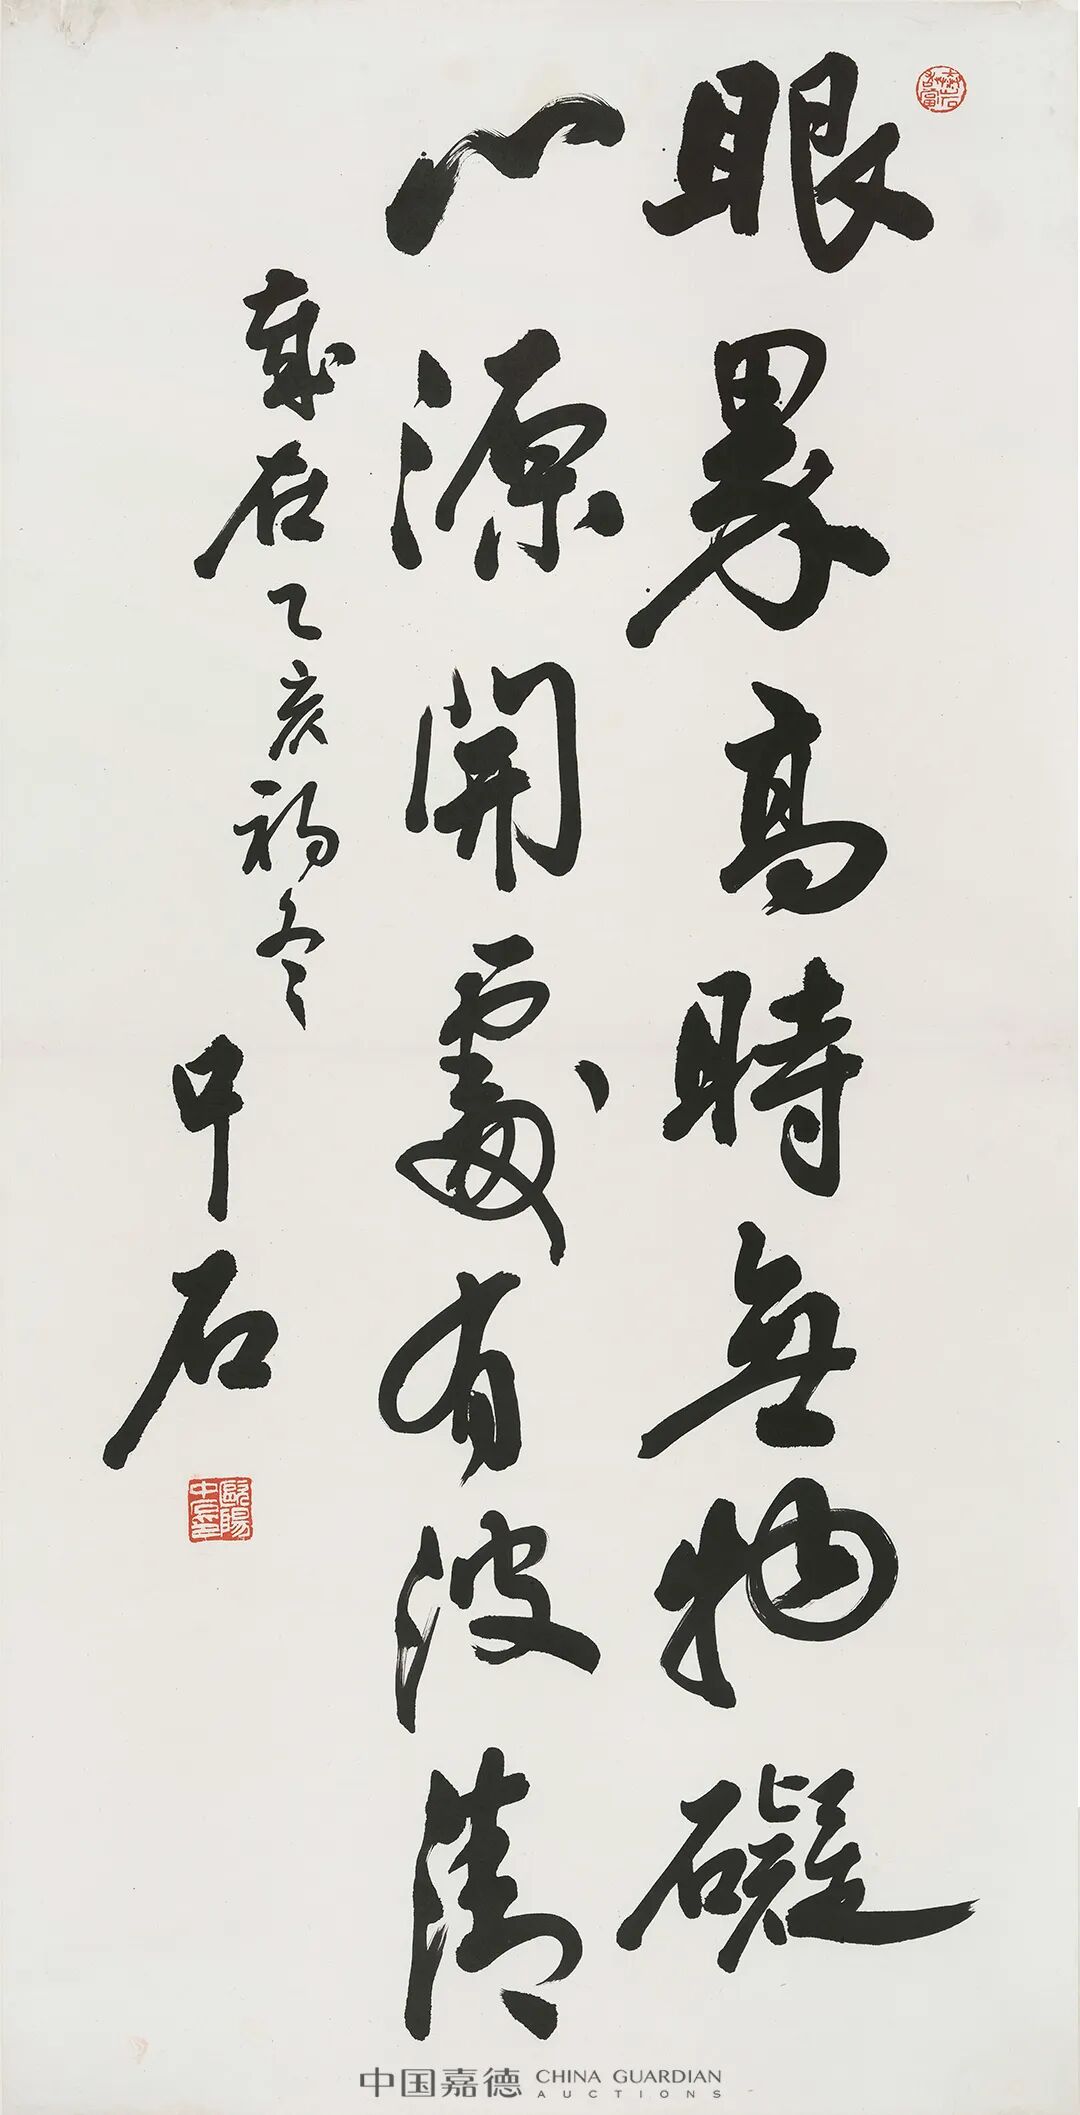 眼界高時無物礙
心源開處有波清
歲在乙亥初冬
中石
歐陽中石印
中国嘉德 CHINA GUARDIAN
AUCTIONS